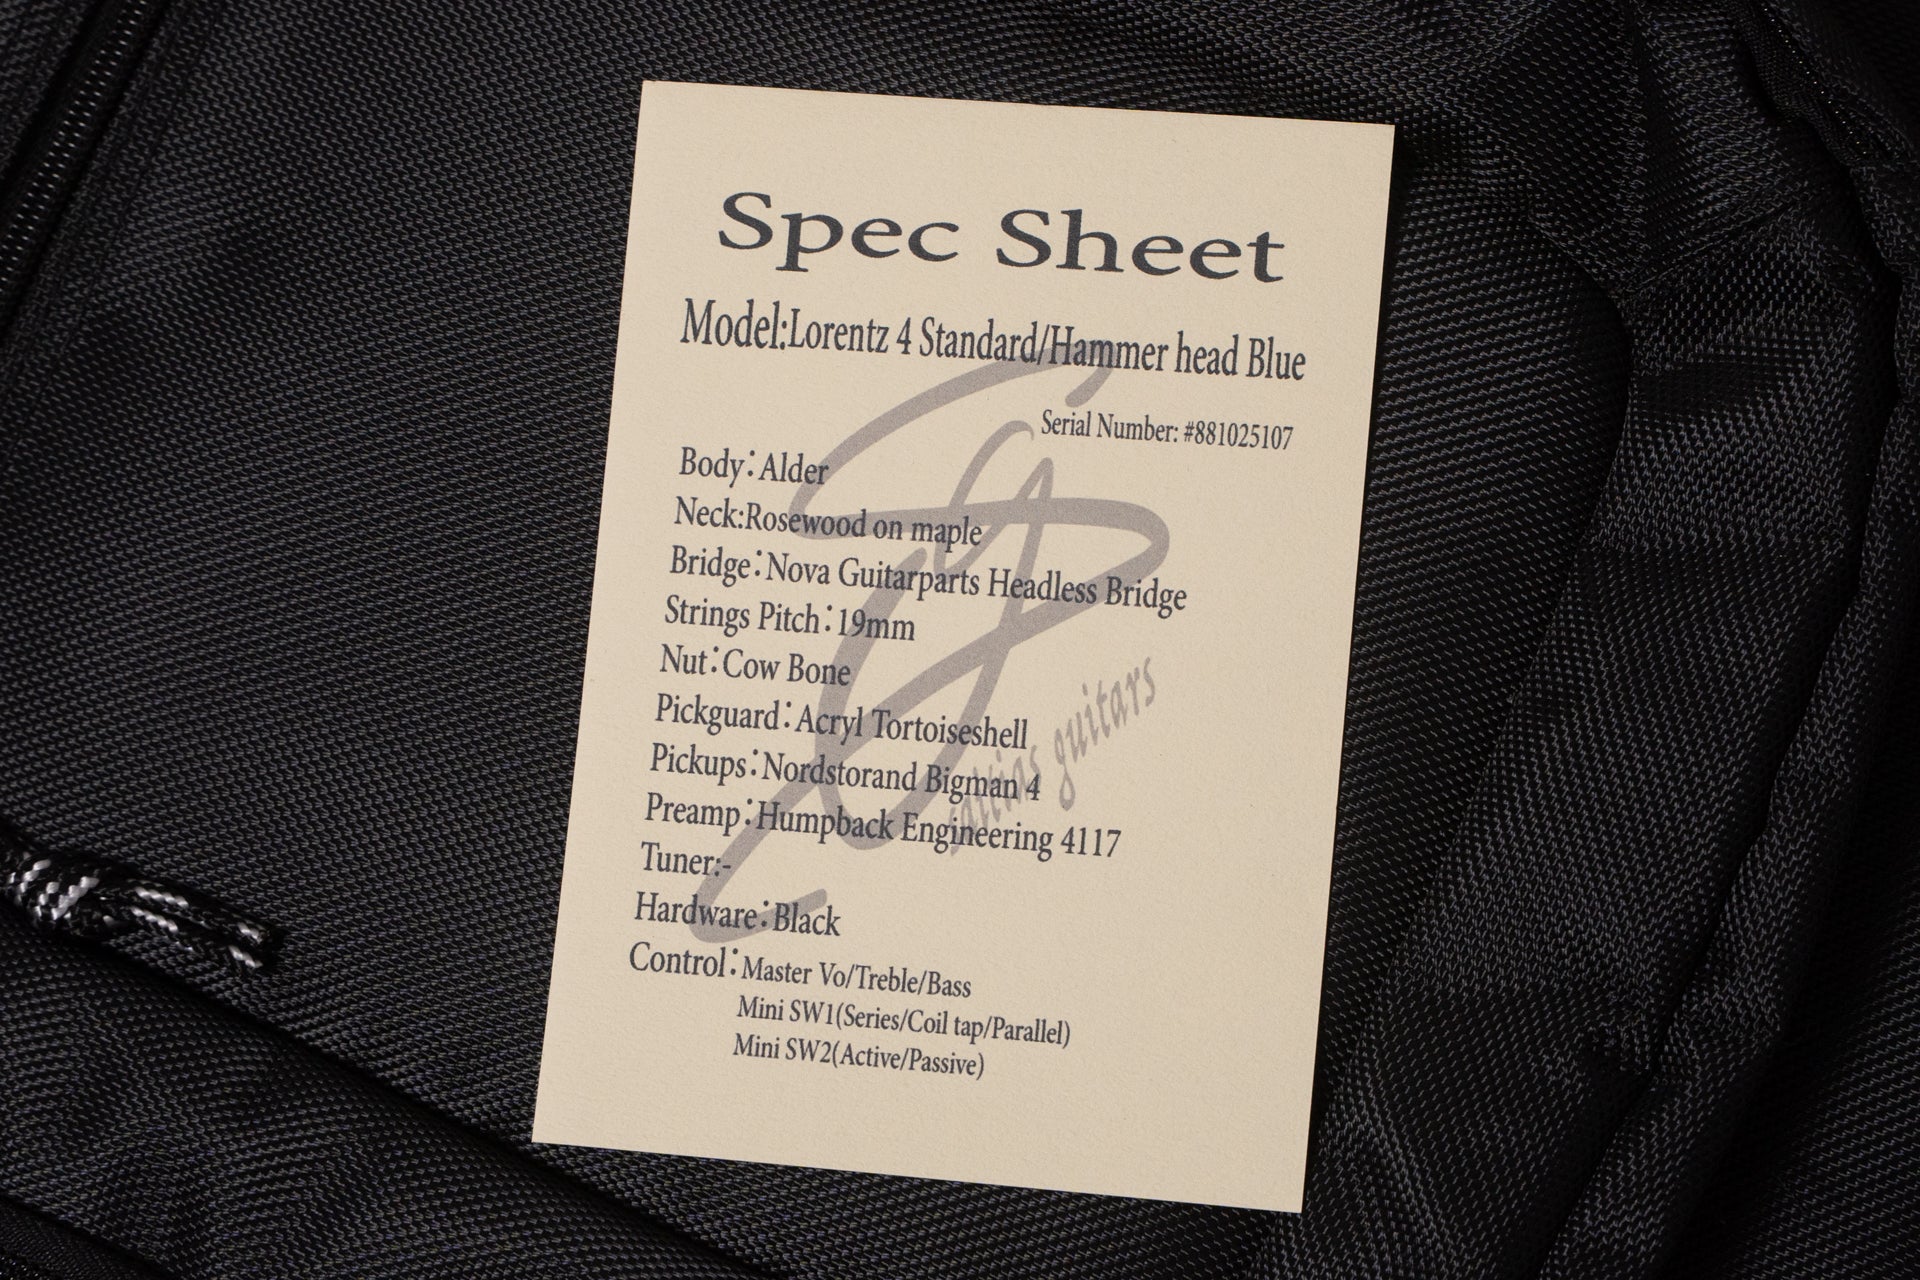 Spec Sheet
Model:Lorentz 4 Standard/Hammer head Blue
Serial Number: #881025107
Body：Alder
Neck:Rosewood on maple
Bridge：Nova Guitarparts Headless Bridge
Strings Pitch：19mm
Nut：Cow Bone
Pickguard：Acryl Tortoiseshell
Pickups：Nordstorand Bigman 4
Preamp：Humpback Engineering 4117
Tuner:-
Hardware：Black
Control：Master Vo/Treble/Bass
Mini SW1(Series/Coil tap/Parallel)
Mini SW2(Active/Passive)
guitars